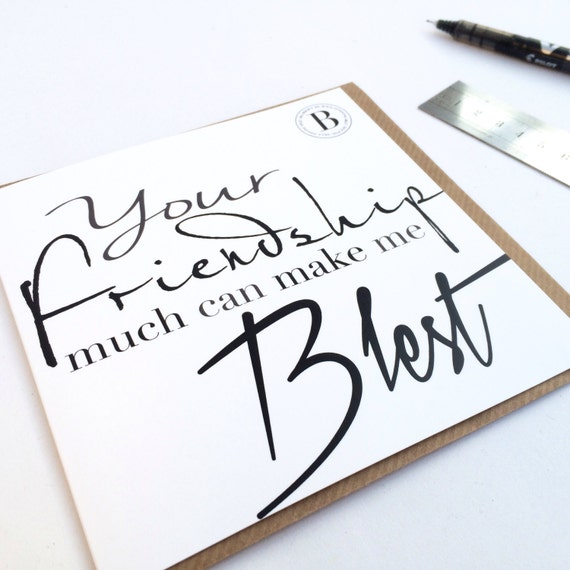 B
Your
friendship
much can make me
Blest
PILOT